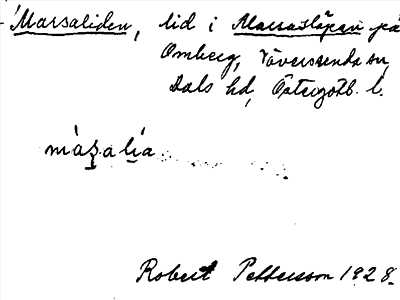 Marsaliden, lid i Marsastigen på
Omberg, Väversunda sn,
Dals hd, Östergötl. l.
màs̱ali̱a
Robert Pettersson 1928.